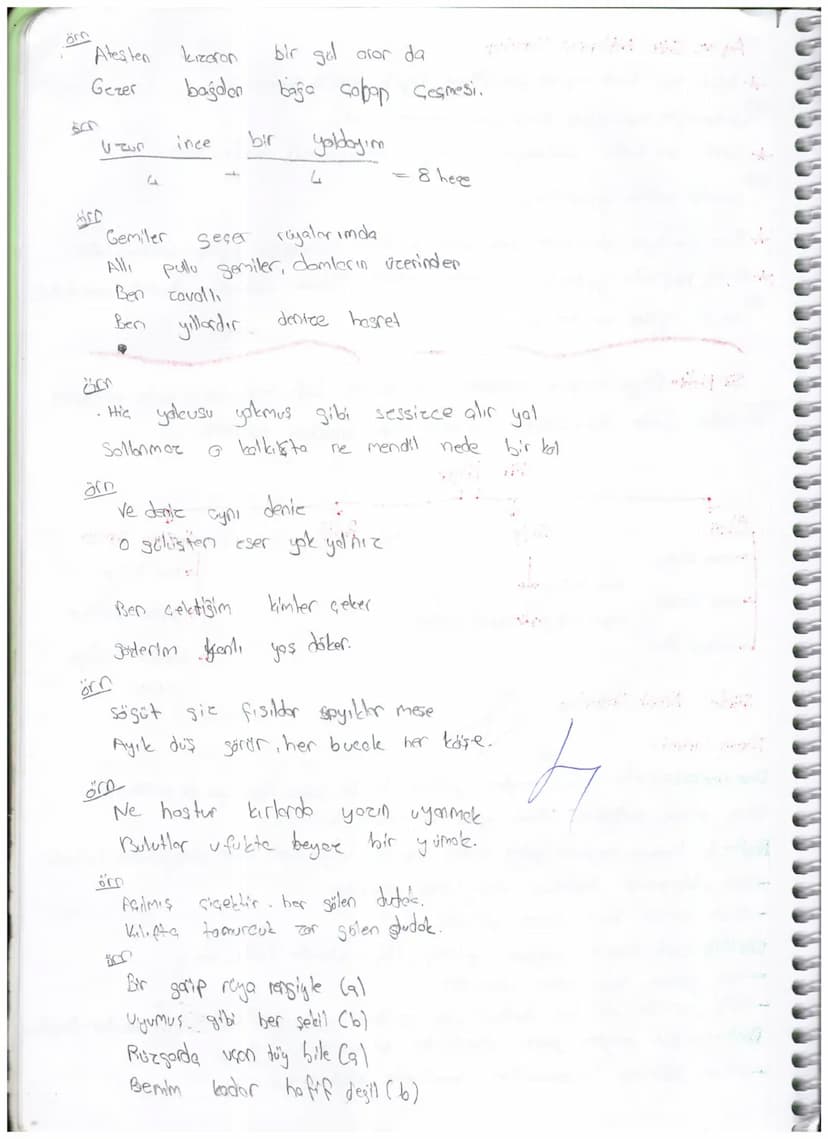 örn
Ateşten kızaran bir gül arar da
Gezer bağdan bağa Çoban Çeşmesi.
örn
uzun ince bir yoldayım
4 + 4 = 8 hece
örn
Gemiler geçer rüyalarımda
Allı pullu gemiler, damların üzerinden
Ben zavallı
Ben yıllardır denize hasret
örn
. Hiç yolcusu yokmuş gibi sessizce alır yol
Sallanmaz o kalkışta ne mendil nede bir kol
örn
ve deniz aynı deniz
o gülüşten eser yok yalnız
Ben çektiğim kimler çeker
gözlerim kanlı yaş döker.
örn
söğüt giz fısıldar meşe
Ayık düş görür, her bucak her köşe.
örn
Ne hoştur kırlarda yazın uyanmak
Bulutlar ufukta beyaz bir yumak.
örn
Açılmış çiçektir. her gülen dudak.
tomurcuk zor gülen dudak.
örn
Bir garip rüya rengiyle (a)
Uyumuş gibi her şekil (b)
Rüzgarda uçan tüy bile (a)
Benim kadar hafif değil (b)